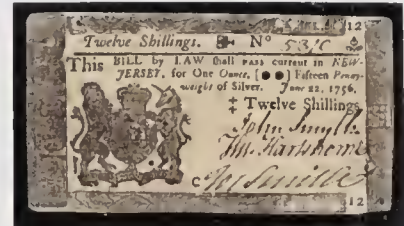 12
Twelve Shillings. Nº
This BILL by LAW shall PASS current in NEW-
JERSEY, for One Ounce, Fifteen Penny-
weight of Silver. June 22, 1756.
‡ Twelve Shillings
John Smyth
C
12